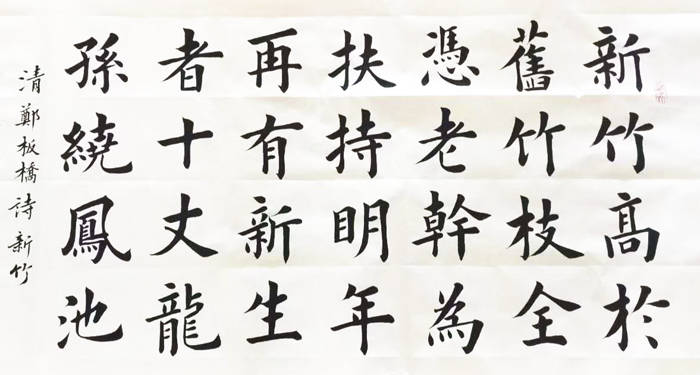 新竹高於
舊竹枝全
憑老幹為
扶持明年
再有新生
者十丈龍
孫繞鳳池
清鄭板橋詩新竹